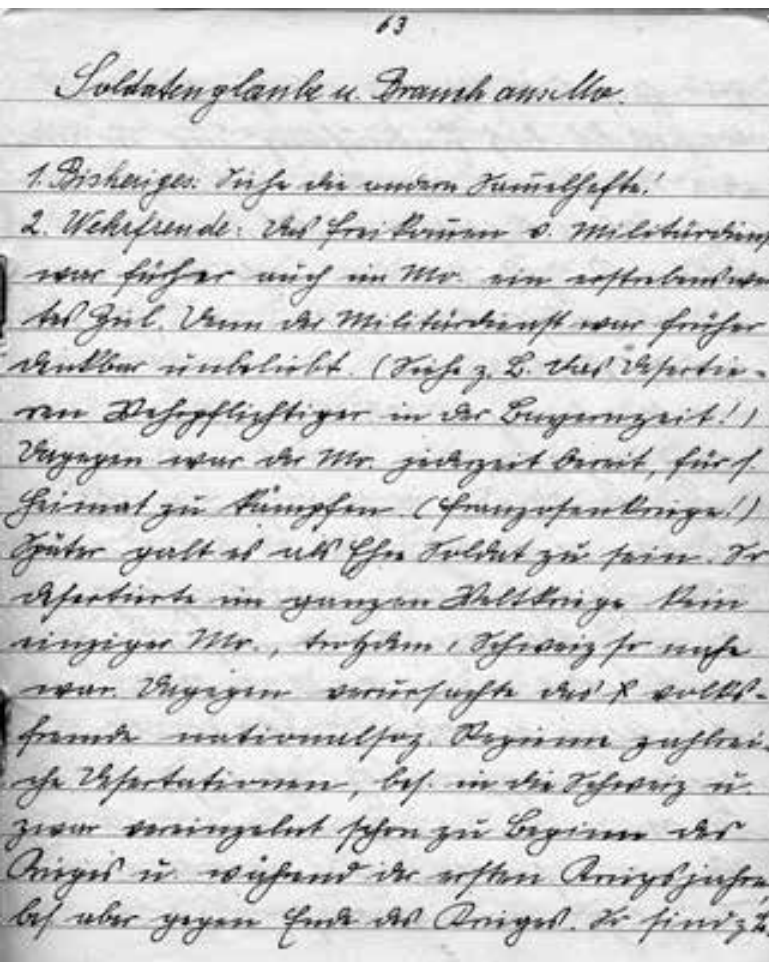 63
Soldatenglaube u. Brauch aus Mo.
1. Bisheriges: Siehe die andern Sammelhefte!
2. Wehrfreude: Das Freikommen v. Militärdienst
war früher auch im Mo. ein erstrebenswer
tes Ziel. Denn der Militärdienst war früher
denkbar unbeliebt. (Siehe z. B. das Desertie-
ren Wehrpflichtiger in der Bayernzeit!)
Dagegen war der Mo. jederzeit bereit, für s.
Heimat zu kämpfen (Franzosenkriege!)
Später galt es als Ehre Soldat zu sein. So
desertierte im ganzen Weltkriege kein
einziger Mo., trotzdem, Schweiz so nahe
war. Dagegen verursachte das volks-
fremde nationalsoz. Regime zahlrei-
che Desertationen, bes. in die Schweiz u.
zwar vereinzelnt schon zu Beginn des
Krieges u. während der ersten Kriegsjahre,
bes. aber gegen Ende des Krieges. So sind z. B.